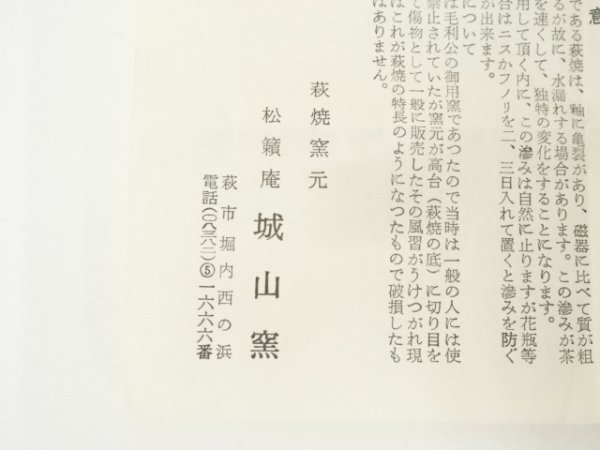 意
である萩焼は、釉に亀裂があり、磁器に比べて質が粗
るが故に、水漏れする場合があります。この滲みが茶
を速くして、独特の変化をすることになります。
用して頂く内に、この滲みは自然に止りますが花瓶等
合はニスかフノリを二、三日入れて置くと滲みを防ぐ
が出来ます。
について
は毛利公の御用窯であつたので当時は一般の人には使
禁止されていたが窯元が高台（萩焼の底）に切り目を
て傷物として一般に販売したその風習がうけつがれ現
はこれが萩焼の特長のようになつたもので破損したも
はありません。
萩焼窯元
松籟庵 城山窯
萩市堀内西の浜
電話（〇八三八二）⑤一六六六番